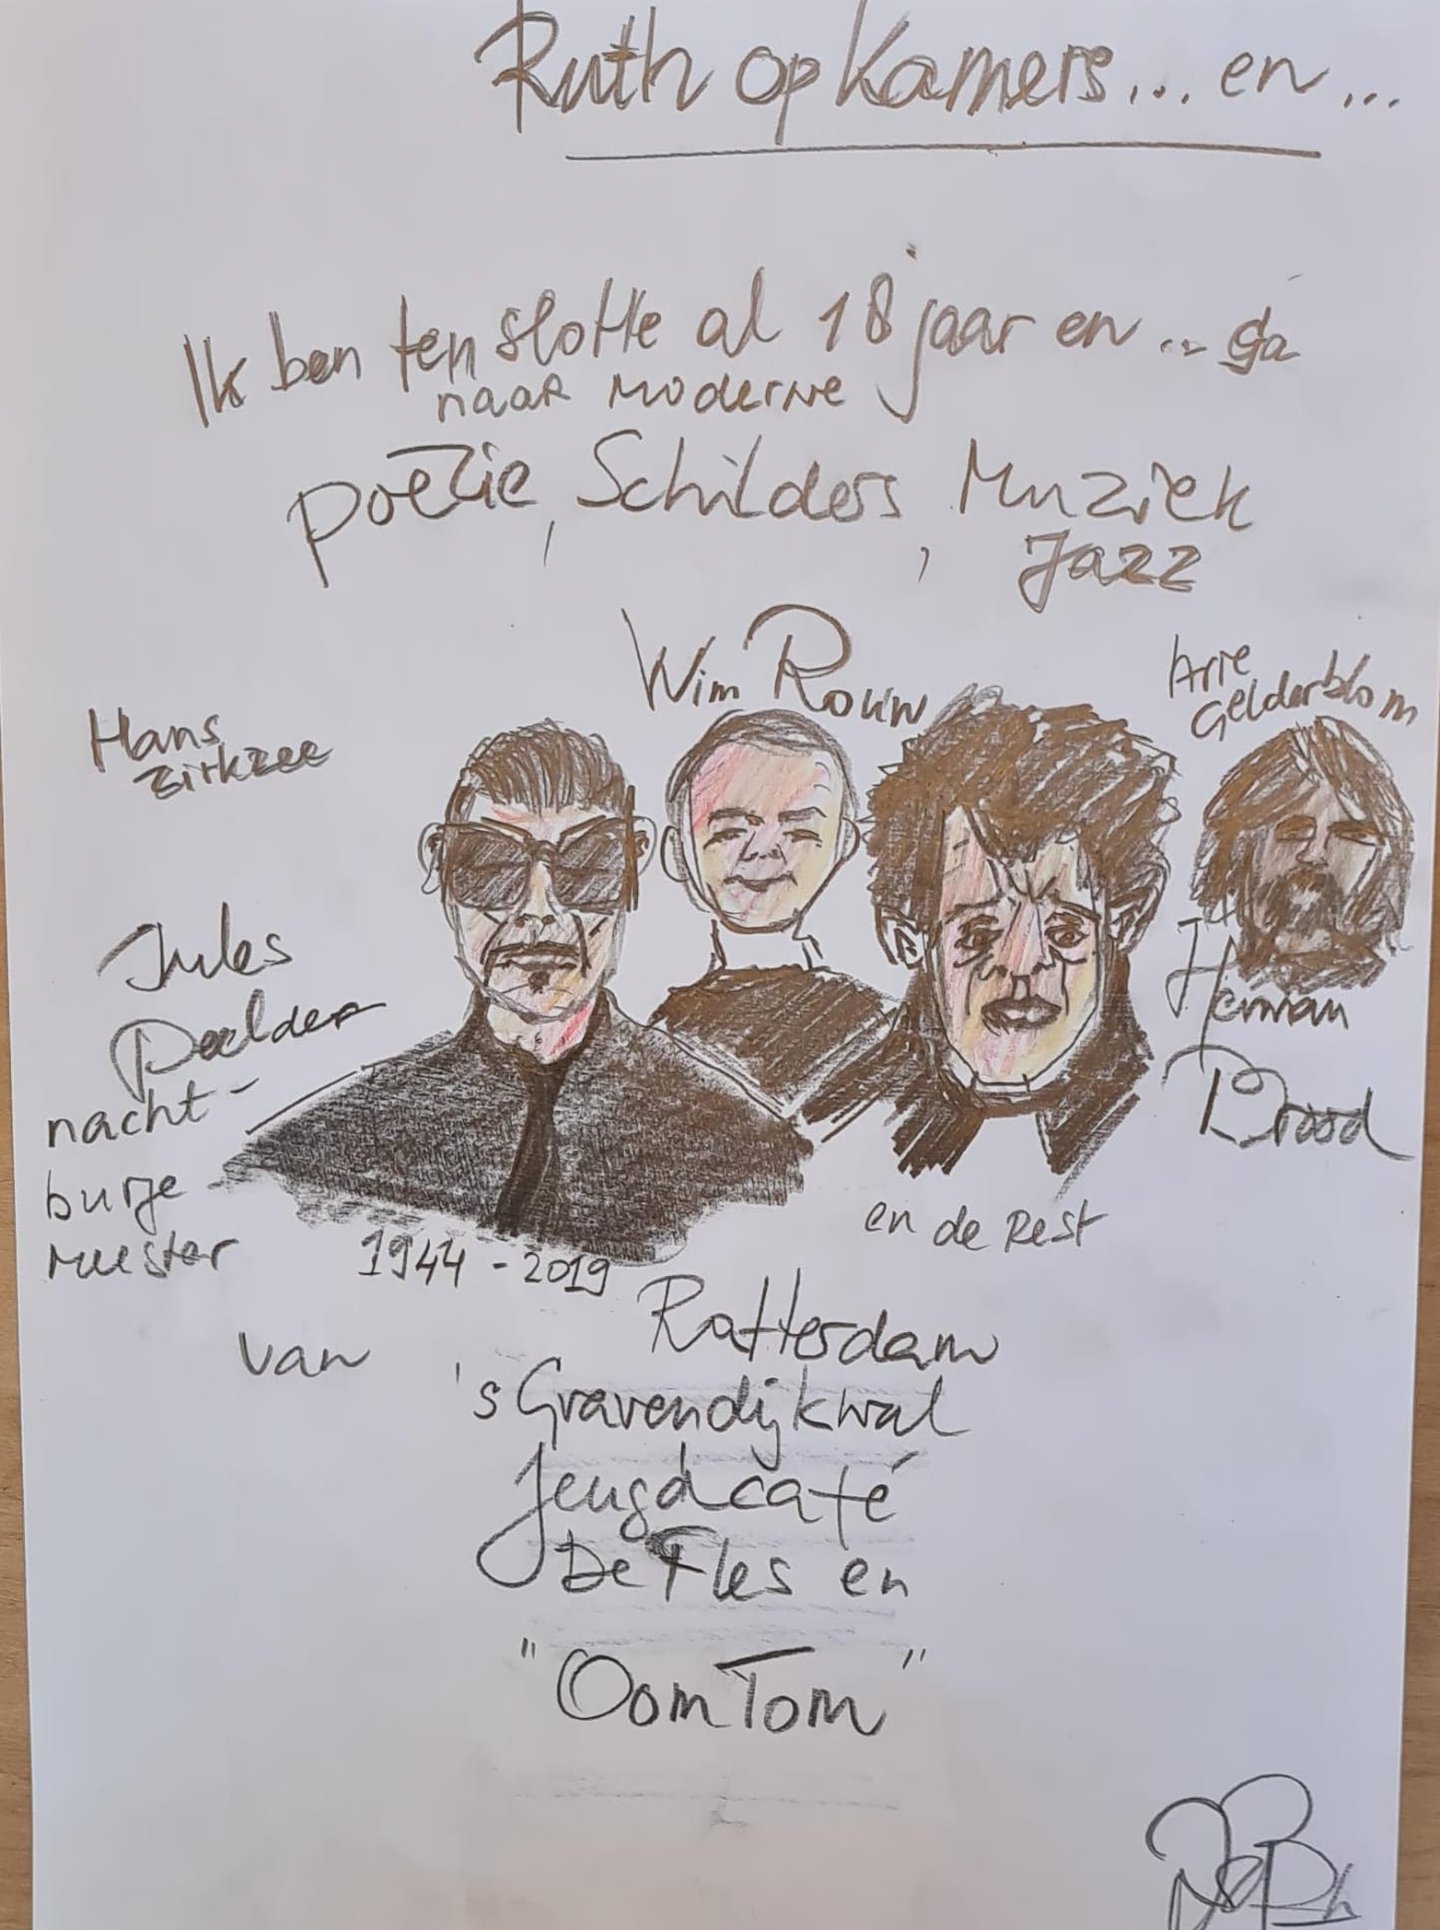 Ruth op Kamers... en...
Ik ben ten slotte al 18 jaar en... ga
naar moderne
poëzie, Schilders, Muziek
Jazz
Wim Rouw
Arie
Gelderblom
Hans
Zirkzee
Jules
Deelder
nacht-
burge
meester
Herman
Brood
en de Rest
1944 - 2019
Rotterdam
van
's Gravendijkwal
Jeugdcafé
De Fles en
"Oom Tom"